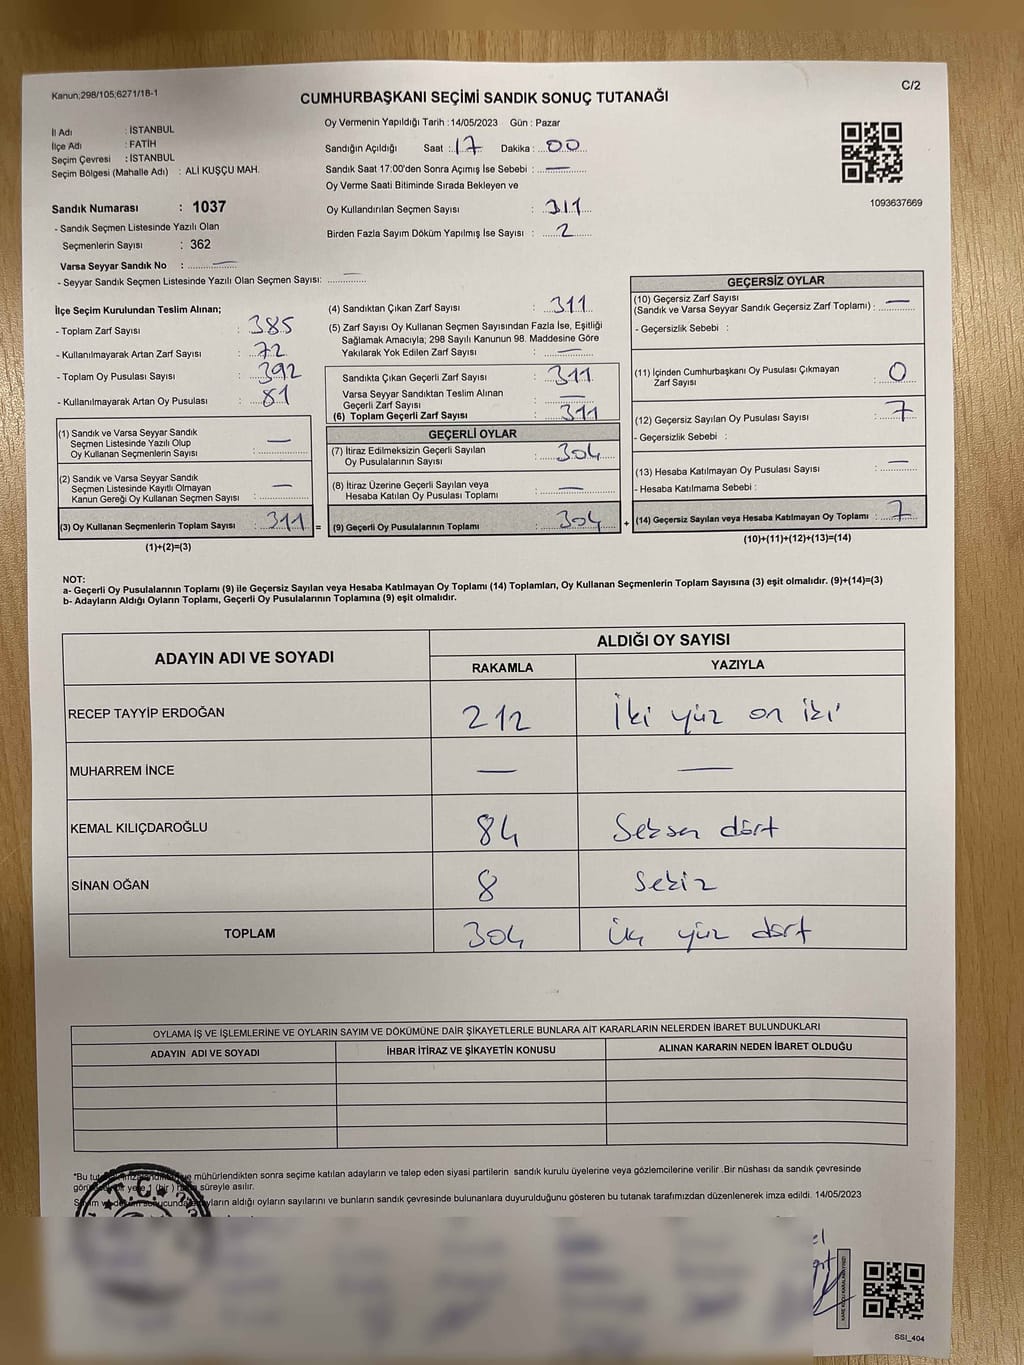 Kanun;298/105;6271/18-1
C/2
CUMHURBAŞKANI SEÇİMİ SANDIK SONUÇ TUTANAĞI
İl Adı : İSTANBUL
İlçe Adı : FATİH
Seçim Çevresi : İSTANBUL
Seçim Bölgesi (Mahalle Adı) : ALİ KUŞÇU MAH.
Sandık Numarası : 1037
- Sandık Seçmen Listesinde Yazılı Olan
Seçmenlerin Sayısı : 362
Varsa Seyyar Sandık No : —
- Seyyar Sandık Seçmen Listesinde Yazılı Olan Seçmen Sayısı: —
Oy Vermenin Yapıldığı Tarih :14/05/2023 Gün : Pazar
Sandığın Açıldığı Saat : 17 Dakika : 00
Sandık Saat 17:00'den Sonra Açımış İse Sebebi : —
Oy Verme Saati Bitiminde Sırada Bekleyen ve
Oy Kullandırılan Seçmen Sayısı : 311
Birden Fazla Sayım Döküm Yapılmış İse Sayısı : 2
1093637669
İlçe Seçim Kurulundan Teslim Alınan;
- Toplam Zarf Sayısı : 385
- Kullanılmayarak Artan Zarf Sayısı : 72
- Toplam Oy Pusulası Sayısı : 392
- Kullanılmayarak Artan Oy Pusulası : 81
(1) Sandık ve Varsa Seyyar Sandık
Seçmen Listesinde Yazılı Olup
Oy Kullanan Seçmenlerin Sayısı : —
(2) Sandık ve Varsa Seyyar Sandık
Seçmen Listesinde Kayıtlı Olmayan
Kanun Gereği Oy Kullanan Seçmen Sayısı : —
(3) Oy Kullanan Seçmenlerin Toplam Sayısı : 311 =
(1)+(2)=(3)
(4) Sandıktan Çıkan Zarf Sayısı : 311
(5) Zarf Sayısı Oy Kullanan Seçmen Sayısından Fazla İse, Eşitliği
Sağlamak Amacıyla; 298 Sayılı Kanunun 98. Maddesine Göre
Yakılarak Yok Edilen Zarf Sayısı : —
Sandıkta Çıkan Geçerli Zarf Sayısı : 311
Varsa Seyyar Sandıktan Teslim Alınan
Geçerli Zarf Sayısı : —
(6) Toplam Geçerli Zarf Sayısı : 311
GEÇERLİ OYLAR
(7) İtiraz Edilmeksizin Geçerli Sayılan
Oy Pusulalarının Sayısı : 304
(8) İtiraz Üzerine Geçerli Sayılan veya
Hesaba Katılan Oy Pusulası Toplamı : —
(9) Geçerli Oy Pusulalarının Toplamı : 304 +
GEÇERSİZ OYLAR
(10) Geçersiz Zarf Sayısı
(Sandık ve Varsa Seyyar Sandık Geçersiz Zarf Toplamı) : —
- Geçersizlik Sebebi :
(11) İçinden Cumhurbaşkanı Oy Pusulası Çıkmayan
Zarf Sayısı : 0
(12) Geçersiz Sayılan Oy Pusulası Sayısı : 7
- Geçersizlik Sebebi :
(13) Hesaba Katılmayan Oy Pusulası Sayısı : —
- Hesaba Katılmama Sebebi :
(14) Geçersiz Sayılan veya Hesaba Katılmayan Oy Toplamı : 7
(10)+(11)+(12)+(13)=(14)
NOT:
a- Geçerli Oy Pusulalarının Toplamı (9) ile Geçersiz Sayılan veya Hesaba Katılmayan Oy Toplamı (14) Toplamları, Oy Kullanan Seçmenlerin Toplam Sayısına (3) eşit olmalıdır. (9)+(14)=(3)
b- Adayların Aldığı Oyların Toplamı, Geçerli Oy Pusulalarının Toplamına (9) eşit olmalıdır.
ADAYIN ADI VE SOYADI
ALDIĞI OY SAYISI
RAKAMLA YAZIYLA
RECEP TAYYİP ERDOĞAN 212 İki yüz on iki
MUHARREM İNCE — —
KEMAL KILIÇDAROĞLU 84 Seksen dört
SİNAN OĞAN 8 Sekiz
TOPLAM 304 üç yüz dört
OYLAMA İŞ VE İŞLEMLERİNE VE OYLARIN SAYIM VE DÖKÜMÜNE DAİR ŞİKAYETLERLE BUNLARA AİT KARARLARIN NELERDEN İBARET BULUNDUKLARI
ADAYIN ADI VE SOYADI İHBAR İTİRAZ VE ŞİKAYETİN KONUSU ALINAN KARARIN NEDEN İBARET OLDUĞU
mühürlendikten sonra seçime katılan adayların ve talep eden siyasi partilerin sandık kurulu üyelerine veya gözlemcilerine verilir .Bir nüshası da sandık çevresinde
süreyle asılır.
aldığı oyların sayılarını ve bunların sandık çevresinde bulunanlara duyurulduğunu gösteren bu tutanak tarafımızdan düzenlenerek imza edildi. 14/05/2023
T.C.
SSI_404